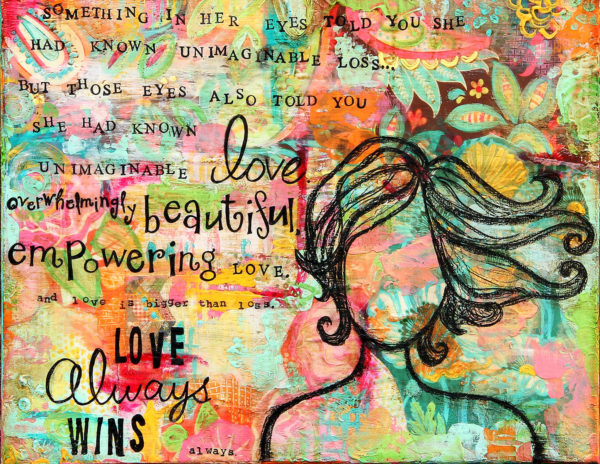 SOMETHING IN HER EYES TOLD YOU SHE
HAD KNOWN UNIMAGINABLE LOSS...
BUT THOSE EYES ALSO TOLD YOU
SHE HAD KNOWN
UNIMAGINABLE love
overwhelmingly beautiful,
empowering LOVE.
and love is bigger than loss.
LOVE
Always
WINS
always.